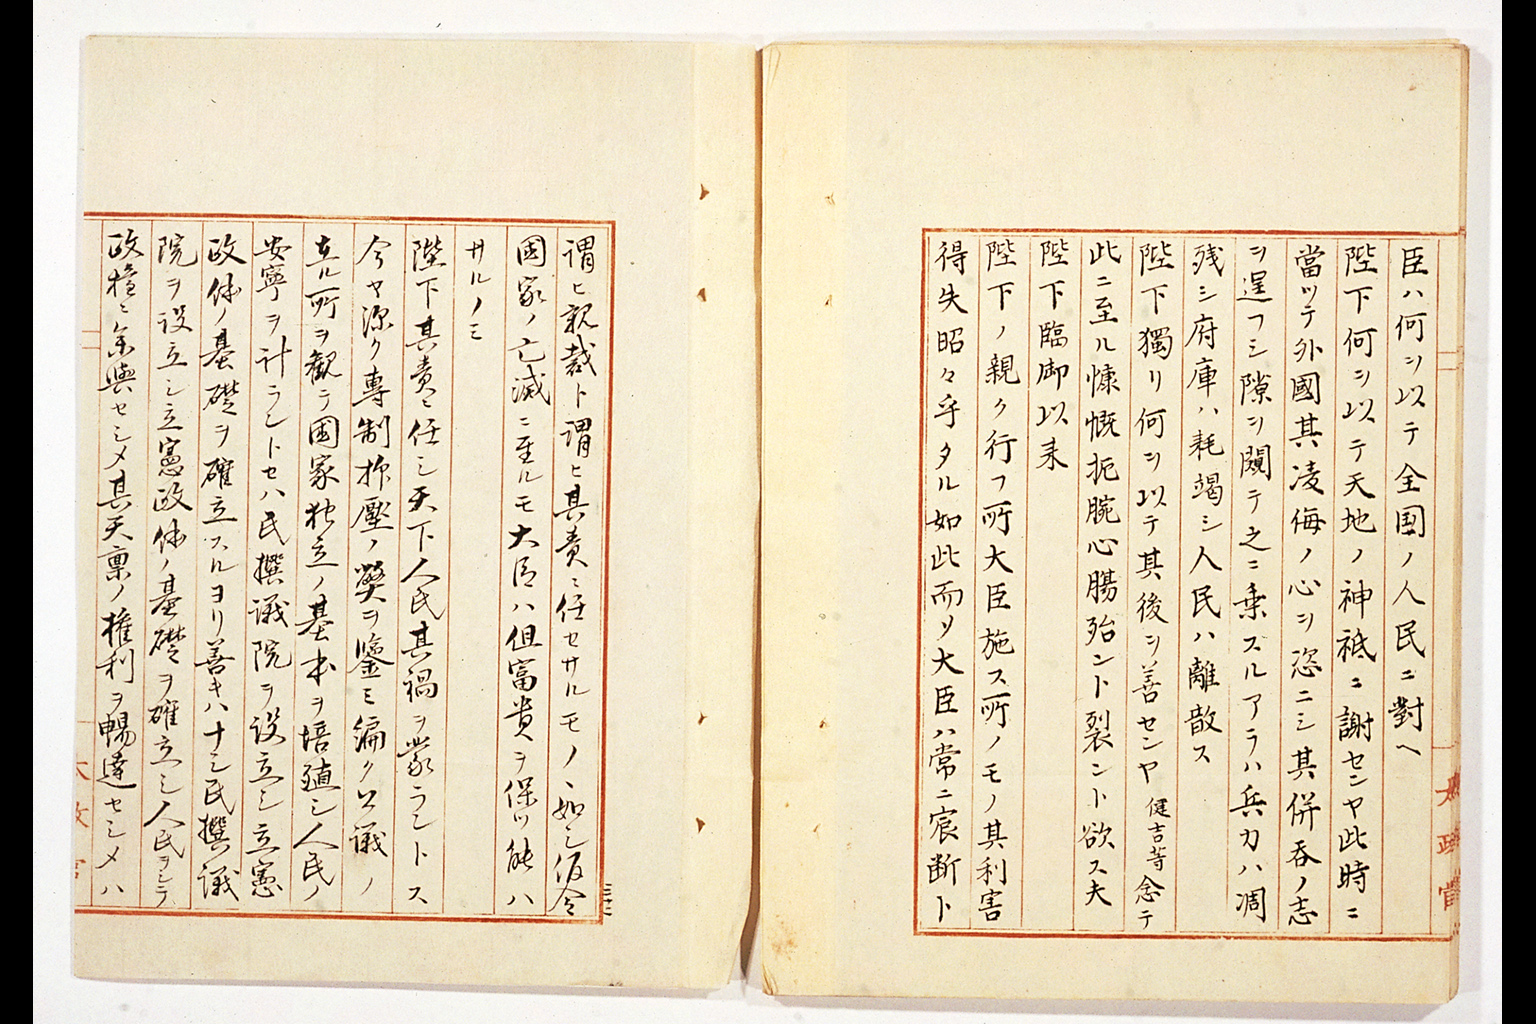 臣ハ何ヲ以テ全国ノ人民ニ對ヘ
陛下何ヲ以テ天地ノ神祗ニ謝センヤ此時ニ
當ッテ外國其凌侮ノ心ヲ恣ニシ其併呑ノ志
ヲ逞フシ隙ヲ闚テ之ニ乗スルアラハ兵力ハ凋
残シ府庫ハ耗竭シ人民ハ離散ス
陛下獨リ何ヲ以テ其後ヲ善センヤ健吉等念テ
此ニ至ル慷慨扼腕心膓殆ント裂ント欲ス夫
陛下臨御以来
陛下ノ親ク行フ所大臣施ス所ノモノ其利害
得失昭々乎タル如此而ソ大臣ハ常ニ宸断ト
太政官
謂ヒ親裁ト謂ヒ其責ニ任セサルモノヽ如シ仮令
國家ノ亡滅ニ至ルモ大臣ハ但富貴ヲ保ツ能ハ
サルノミ
陛下其責ニ任シ天下人民其禍ヲ蒙ラントス
今ヤ深ク専制抑壓ノ弊ヲ鑒ミ編ク公議ノ
在ル所ヲ観テ国家独立ノ基本ヲ培殖シ人民ノ
安寧ヲ計ラントセハ民撰議院ヲ設立シ立憲
政体ノ基礎ヲ確立スルヨリ善キハナシ民撰議
院ヲ設立シ立憲政体ノ基礎ヲ確立シ人民ヲシテ
政権ニ参與セシメ其天禀ノ権利ヲ暢達セシメハ
太政官